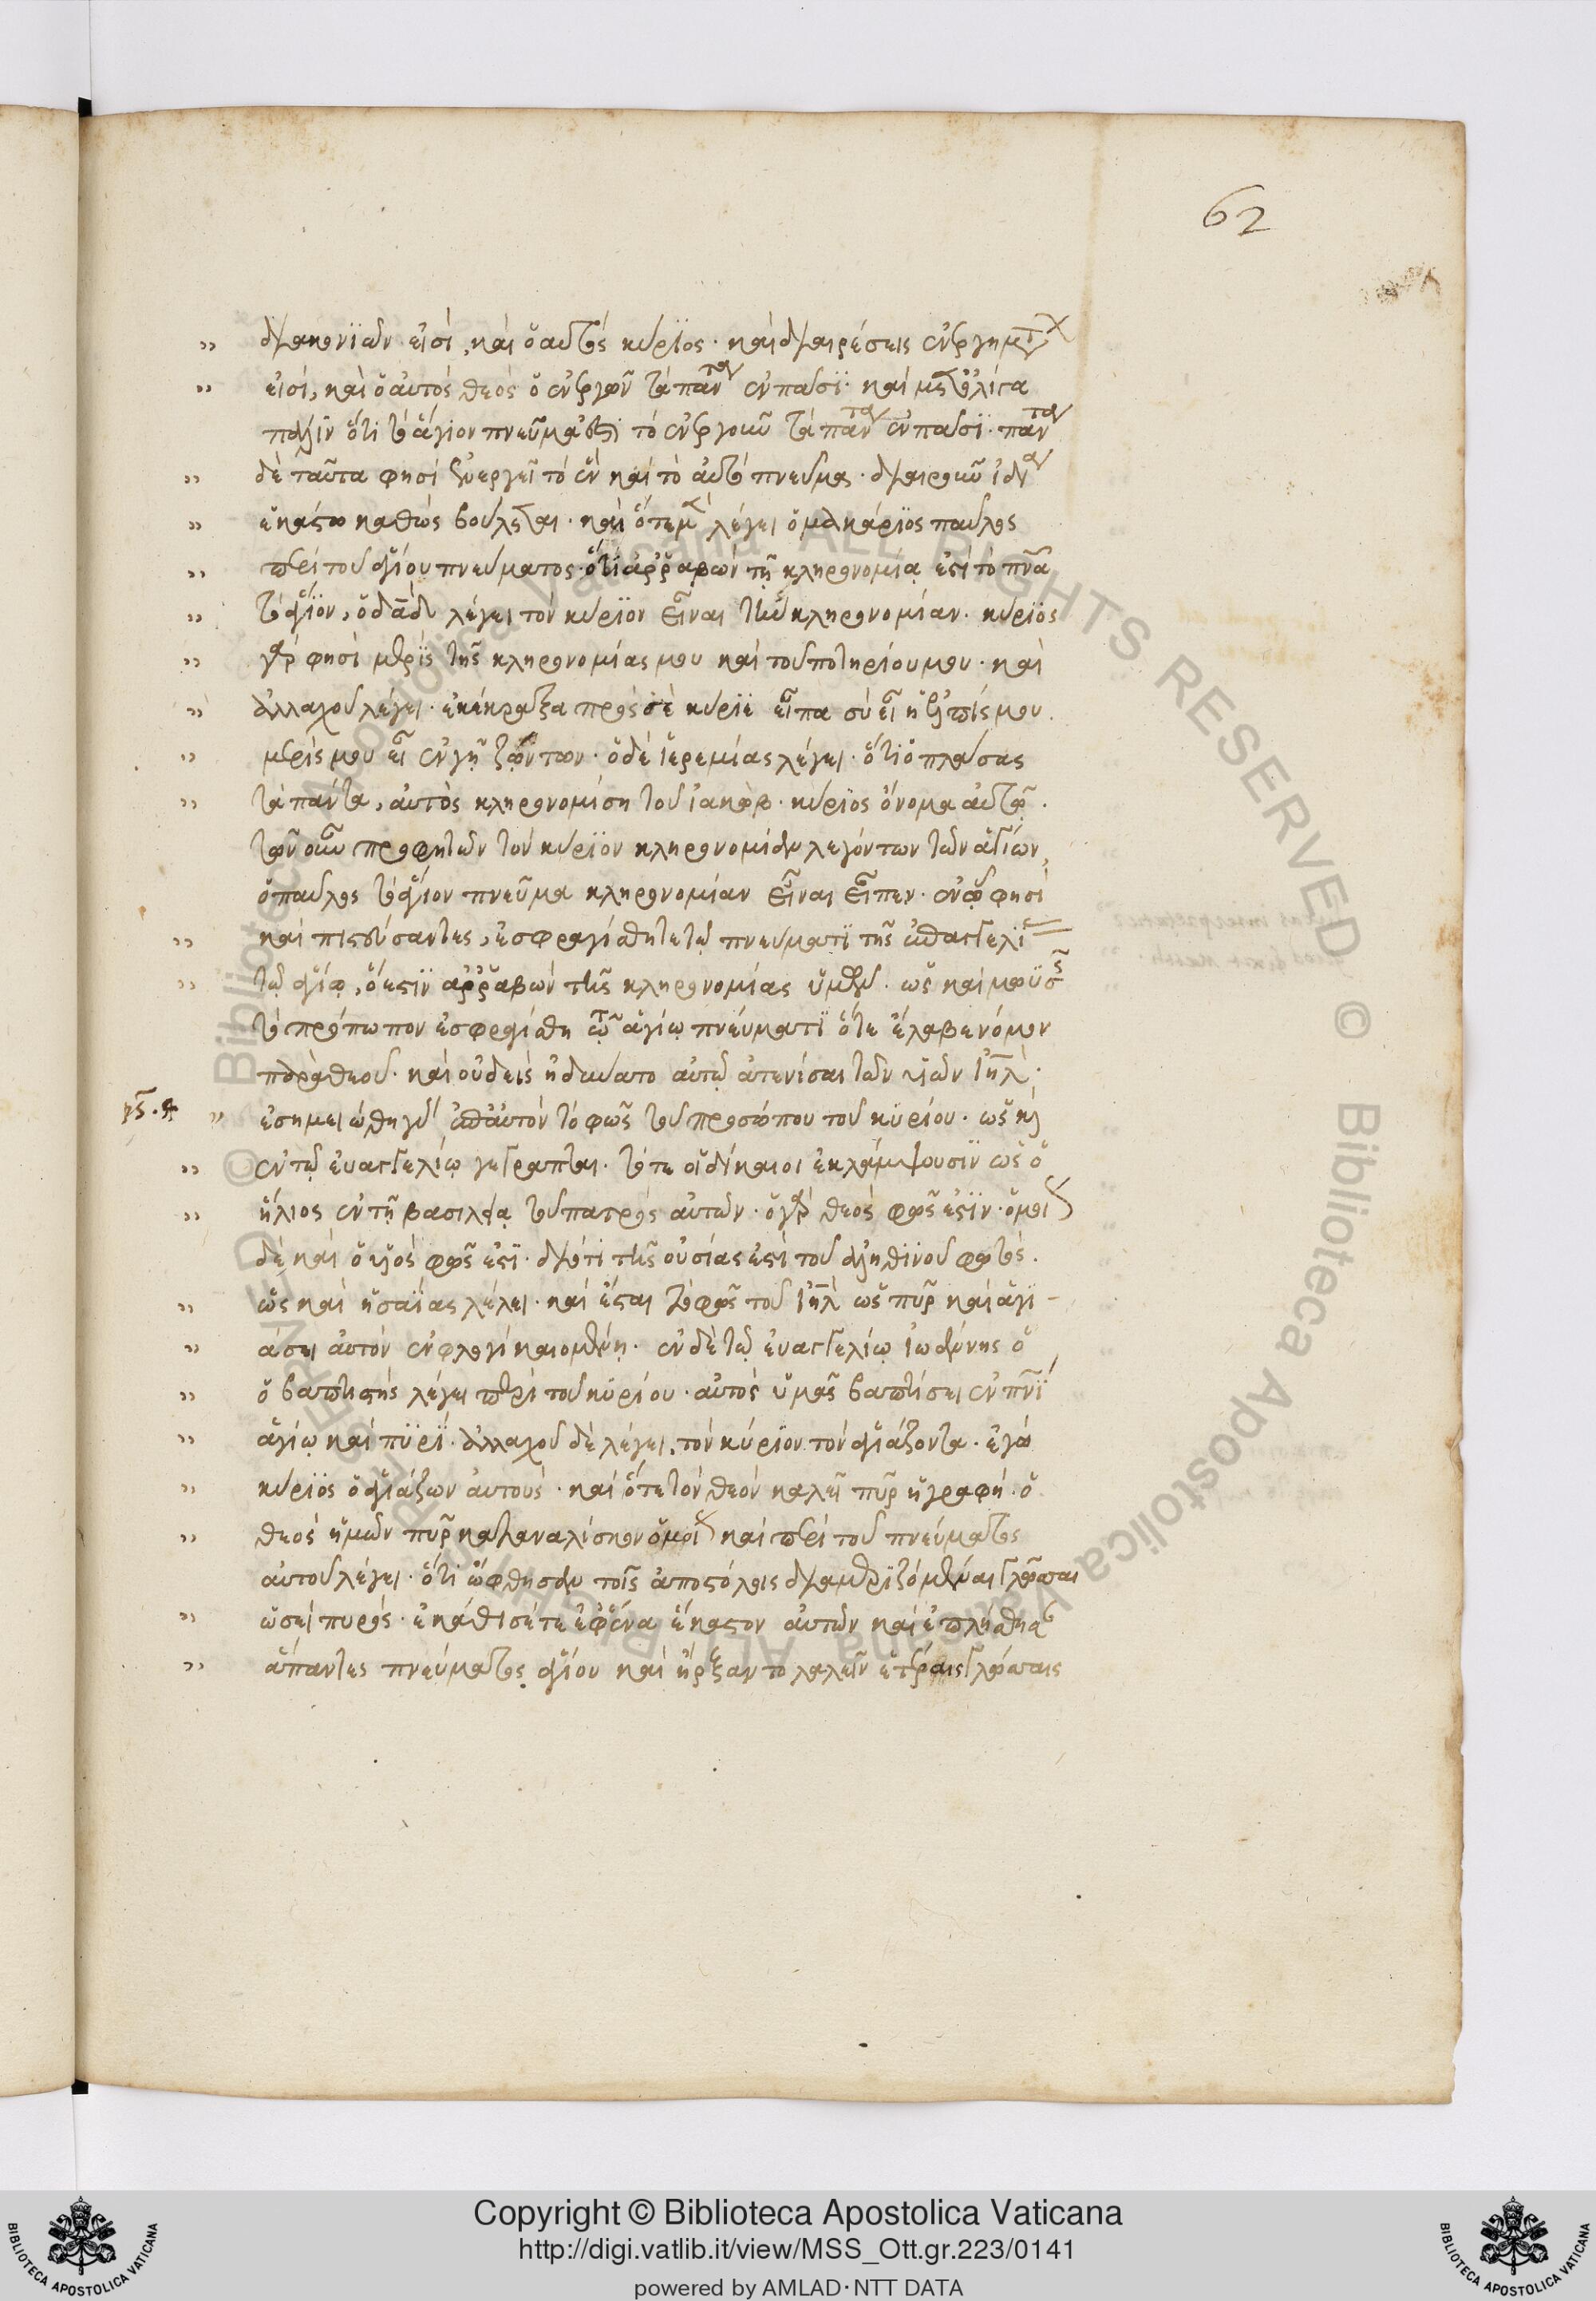 62
διακονιῶν εἰσὶ, καὶ ὁ αὐτὸς κύριος· καὶ διαιρέσεις ἐνεργημάτων
εἰσὶ, καὶ ὁ αὐτὸς θεὸς ὁ ἐνεργῶν τὰ πάντα ἐν πᾶσι· καὶ
πάλιν ὅτι τὸ ἅγιον πνεῦμα ἐστὶ τὸ ἐνεργοῦν τὰ πάντα ἐν πᾶσι· πάντα
δὲ ταῦτα φησὶ ἐνεργεῖ τὸ ἓν καὶ τὸ αὐτὸ πνεῦμα· διαιροῦν ἰδία
ἑκάστω καθὼς βούλεται· καὶ λέγει ὁ μακάριος παῦλος
περὶ τοῦ ἁγίου πνεύματος· ὅτι ἀρραβὼν τῇ κληρονομίᾳ ἐστὶ τὸ πνα
τὸ ἅγιον, ὁ δαδ λέγει τὸν κύριον εἶναι τὴν κληρονομίαν· κύριος
γὰρ φησὶ μερὶς τῆς κληρονομίας μου καὶ τοῦ ποτηρίου μου· καὶ
ἀλλαχοῦ λέγει· ἐκέκραξα πρὸς σὲ κύριε εἶπα σὺ εἶ ἡ ἐλπίς μου.
μερίς μου εἶ ἐν γῇ ζώντων· ὁ δὲ ἱερεμίας λέγει· ὅτι ὁ πλάσας
τὰ πάντα, αὐτὸς κληρονομίση τοῦ ἰακώβ· κύριος ὄνομα αὐτῷ.
τῶν οὖν προφητῶν τὸν κύριον κληρονομίαν λεγόντων τῶν ἁγίων,
ὁ παῦλος τὸ ἅγιον πνεῦμα κληρονομίαν εἶναι εἶπεν· ἐν ᾧ φησὶ
καὶ πιστεύσαντες, ἐσφραγίσθητε τῷ πνεύματι τῆς ἐπαγγελίας
τῷ ἁγίῳ, ὅ ἐστιν ἀρραβὼν τῆς κληρονομίας ὑμῶν· ὡς καὶ μωϋσῆς
τὸ πρόσωπον ἐσφραγίσθη τῷ ἁγίω πνεύματι ὅτε ἔλαβε νόμον
παρὰ θεοῦ· καὶ οὐδεὶς ἠδύνατο αὐτῷ ἀτενίσαι τῶν υἱῶν ιηλ·
ἐσημειώθη γὰρ ἐπ' αὐτὸν τὸ φῶς τοῦ προσώπου τοῦ κυρίου· ὡς καὶ
ἐν τῷ εὐαγγελίῳ γέγραπται· τότε οἱ δίκαιοι ἐκλάμψουσιν ὡς ὁ
ἥλιος ἐν τῇ βασιλείᾳ τοῦ πατρὸς αὐτῶν· ὁ γὰρ θεὸς φῶς ἐστιν· ὁμοίως
δὲ καὶ ὁ υἱὸς φῶς ἐστι· διότι τῆς οὐσίας ἐστὶ τοῦ ἀληθινοῦ φωτός.
ὡς καὶ ἡσαΐας λέγει· καὶ ἔσται τὸ φῶς τοῦ ιηλ ὡς πῦρ καὶ ἁγι-
άσει αὐτὸν ἐν φλογὶ καιομένῃ· ἐν δὲ τῷ εὐαγγελίῳ ἰωάννης ὁ
ὁ βαπτιστὴς λέγει περὶ τοῦ κυρίου· αὐτὸς ὑμᾶς βαπτίσει ἐν πνι
ἁγίῳ καὶ πυρὶ· ἀλλαχοῦ δὲ λέγει, τὸν κύριον τὸν ἁγιάζοντα· ἐγὼ
κύριος ὁ ἁγιάζων αὐτούς· καὶ ὅτε τὸν θεὸν καλεῖ πῦρ ἡ γραφή· ὁ
θεὸς ἡμῶν πῦρ καταναλίσκον ὁμοίως καὶ περὶ τοῦ πνεύματος
αὐτοῦ λέγει· ὅτι ὤφθησαν τοῖς ἀποστόλοις διαμεριζόμεναι γλῶσσαι
ὡσεὶ πυρός· ἐκάθισέ τε ἐφ' ἕνα ἕκαστον αὐτῶν καὶ ἐπλήσθησαν
ἅπαντες πνεύματος ἁγίου καὶ ἤρξαντο λαλεῖν ἑτέραις γλώσσαις
Copyright © Biblioteca Apostolica Vaticana
http://digi.vatlib.it/view/MSS_Ott.gr.223/0141
powered by AMLAD·NTT DATA